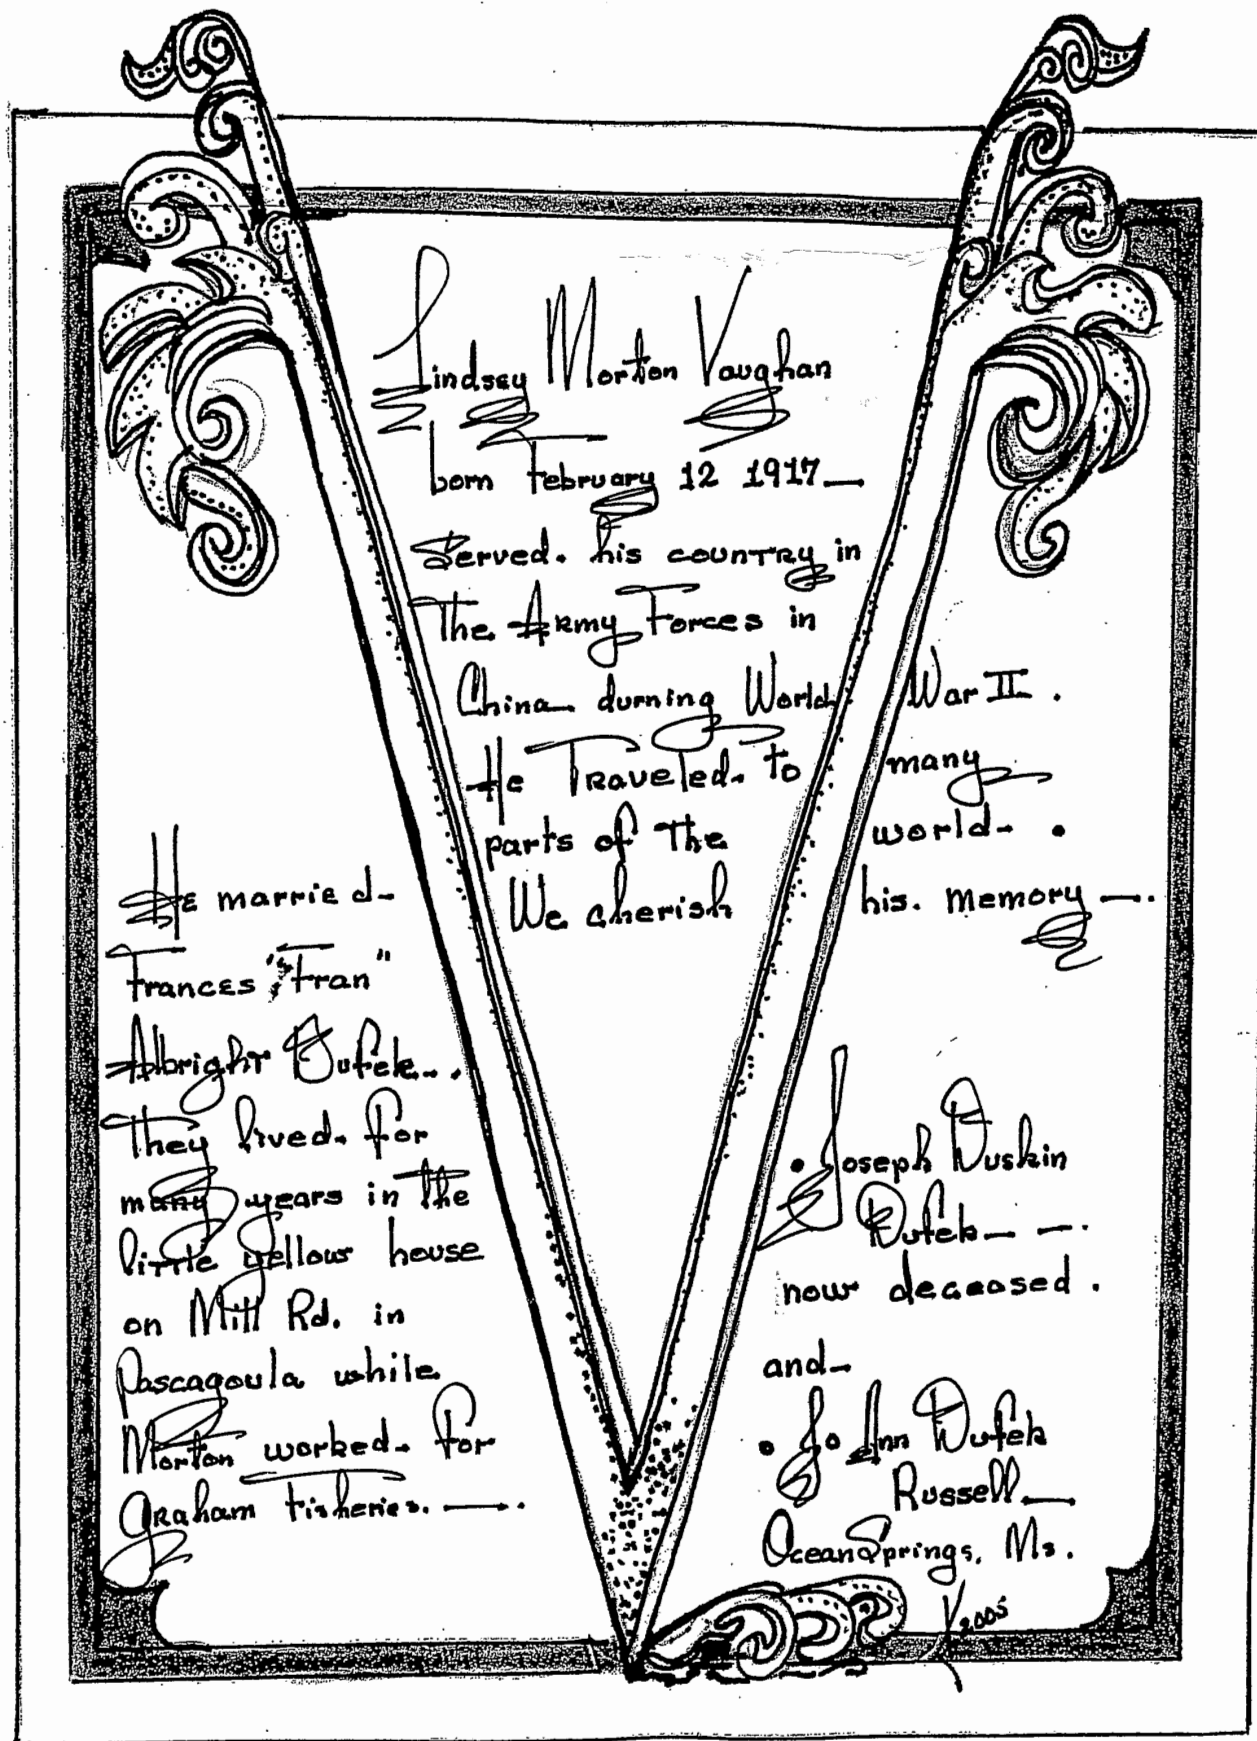 Lindsey Morton Vaughan
born February 12 1917
Served his country in
The Army Forces in
China durning World War II.
He Traveled to many
parts of The world.
We cherish his memory
He married
Frances "Fran"
Albright Dufek.
They lived for
many years in The
little yellow house
on Mill Rd. in
Pascagoula while
Morton worked for
Graham Fisheries.
• Joseph Duskin
Dufek
now deceased.
and
• Jo Ann Dufek
Russell
Ocean Springs, Ms.
2005